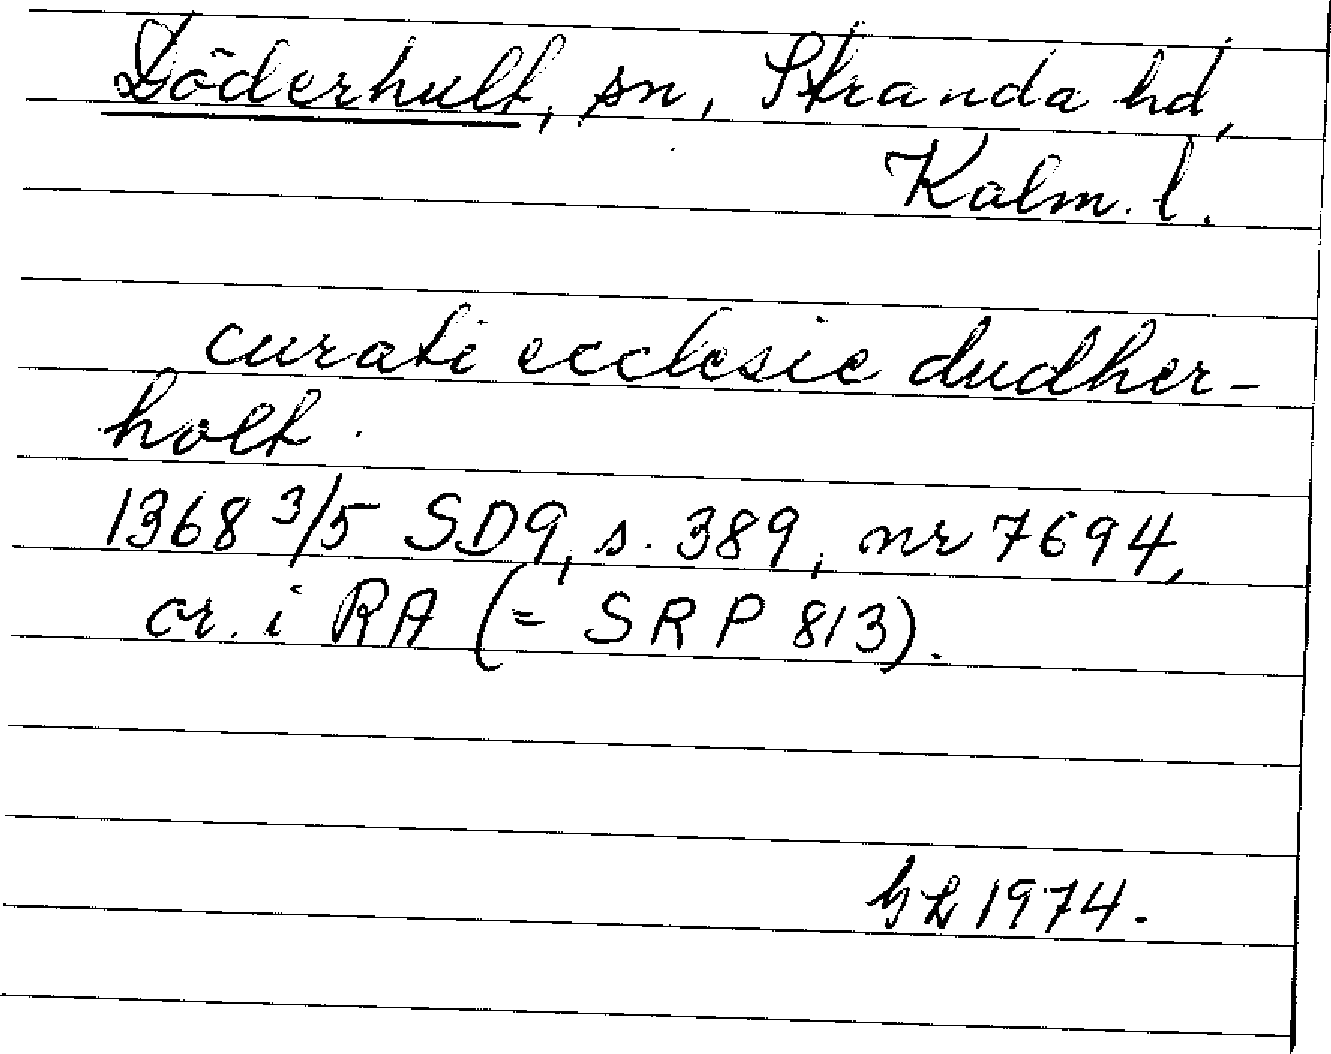 Döderhult, sn, Stranda hd,
Kalm. l.
curati ecclesie dudher-
holt.
1368 3/5 SD9, s. 389, nr 7694,
or. i RA (= SRP 813).
1974.